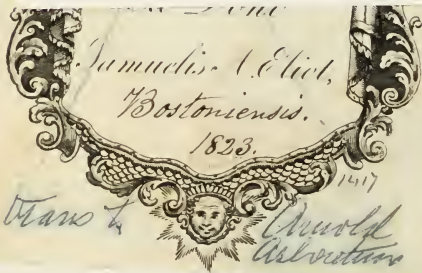 Dono
Samuelis A. Eliot,
Bostoniensis.
1823.
1417
trans to Arnold
Arboretum